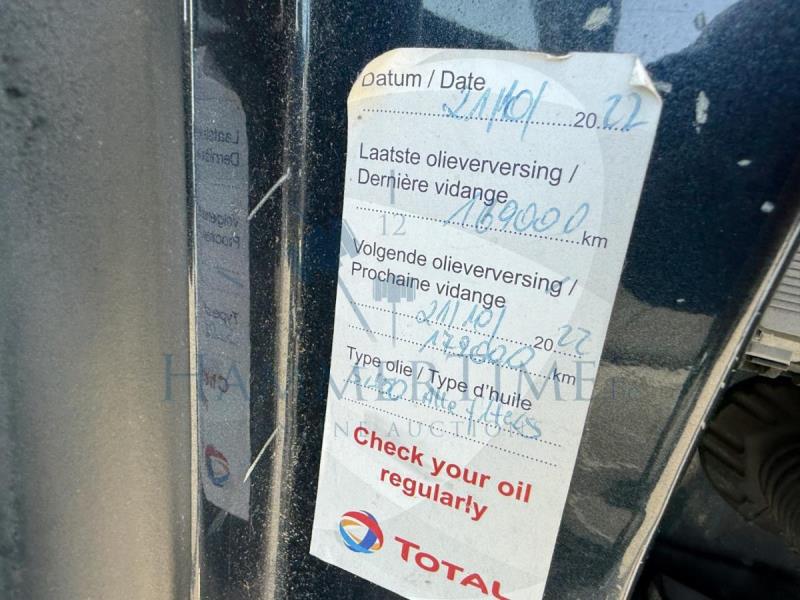 Datum / Date
21/10/ 20 22
Laatste olieverversing /
Dernière vidange
169000 km
Volgende olieverversing /
Prochaine vidange
21/10/ 20 22
179000 km
Type olie / Type d'huile
Check your oil
regularly
TOTAL
12
HAMMERTIME
ONLINE AUCTIONS